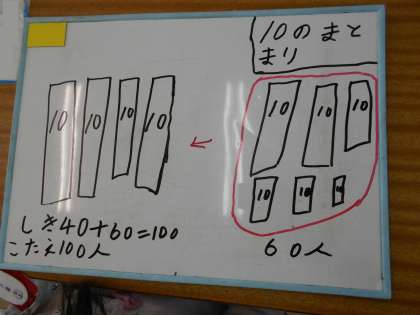 10のまと
まり
10 10 10 10
10 10 10
10 10
しき40+60=100
こたえ100人
60人